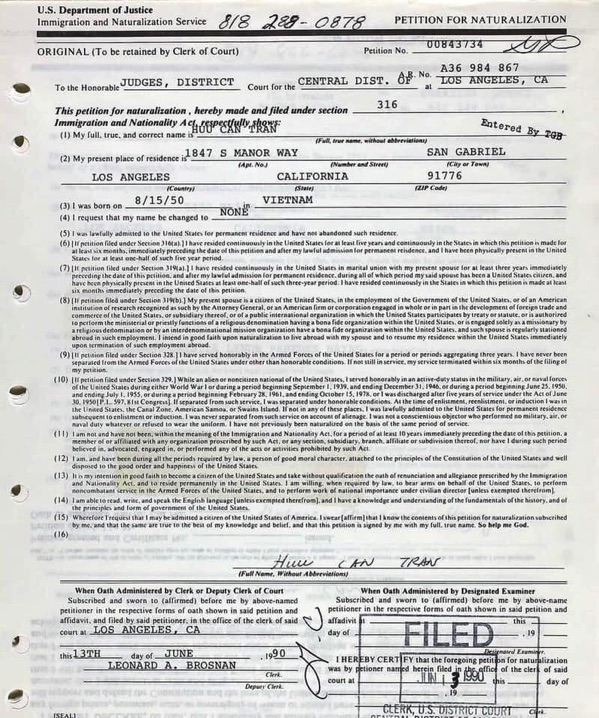 U.S. Department of Justice
Immigration and Naturalization Service 818 288-0878 PETITION FOR NATURALIZATION
ORIGINAL (To be retained by Clerk of Court) Petition No. 00843734
A.R. No. A36 984 867
To the Honorable JUDGES, DISTRICT Court for the CENTRAL DIST. OF at LOS ANGELES, CA
This petition for naturalization, hereby made and filed under section 316,
Immigration and Nationality Act, respectfully shows:
Entered By TGB
(1) My full, true, and correct name is HUU CAN TRAN
(Full, true name, without abbreviations)
(2) My present place of residence is 1847 S MANOR WAY SAN GABRIEL
(Apt. No.) (Number and Street) (City or Town)
LOS ANGELES CALIFORNIA 91776
(Country) (State) (ZIP Code)
(3) I was born on 8/15/50 in VIETNAM
(4) I request that my name be changed to NONE
(5) I was lawfully admitted to the United States for permanent residence and have not abandoned such residence.
(6) [If petition filed under Section 316(a).] I have resided continuously in the United States for at least five years and continuously in the State in which this petition is made for
at least six months, immediately preceding the date of this petition and after my lawful admission for permanent residence, and I have been physically present in the United
States for at least one-half of such five year period.
(7) [If petition filed under Section 319(a).] I have resided continuously in the United States in marital union with my present spouse for at least three years immediately
preceding the date of this petition, and after my lawful admission for permanent residence, during all of which period my said spouse has been a United States citizen, and
have been physically present in the United States at least one-half of such three-year period. I have resided continuously in the State in which this petition is made at least
six months immediately preceding the date of this petition.
(8) [If petition filed under Section 319(b).] My present spouse is a citizen of the United States, in the employment of the Government of the United States, or of an American
institution of research recognized as such by the Attorney General, or an American firm or corporation engaged in whole or in part in the development of foreign trade and
commerce of the United States, or subsidiary thereof, or of a public international organization in which the United States participates by treaty or statute, or is authorized
to perform the ministerial or priestly functions of religious denomination having a bona fide organization within the United States, or is engaged solely as a missionary by
a religious denomination or by an interdenominational mission organization have a bona fide organization within the United States, and such spouse is regularly stationed
abroad in such employment. I intend in good faith upon naturalization to live abroad with my spouse and to resume my residence within the United States immediately
upon termination of such employment abroad.
(9) [If petition filed under Section 328.] I have served honorably in the Armed Forces of the United States for a period or periods aggregating three years. I have never been
separated from the Armed Forces of the United States under other than honorable conditions. If not still in service, my service terminated within six months of the filing of
my petition.
(10) [If petition filed under Section 329.] While an alien or noncitizen national of the United States, I served honorably in an active-duty status in the military, air, or naval forces
of the United States during either World War I or during a period beginning September 1, 1939, and ending December 31, 1946, or during a period beginning June 25, 1950,
and ending July 1, 1955, or during a period beginning February 28, 1961, and ending October 15, 1978, or I was discharged after five years of service under the Act of June
30, 1950 [P.L. 597, 81st Congress]. If separated from such service, I was separated under honorable conditions. At the time of enlistment, reenlistment, or induction I was in
the United States, the Canal Zone, American Samoa, or Swains Island. If not in any of these places, I was lawfully admitted to the United States for permanent residence
subsequent to enlistment or induction. I was never separated from such service on account of alienage. I was not a conscientious objector who performed no military, air, or
naval duty whatever or refused to wear the uniform. I have not previously been naturalized on the basis of the same period of service.
(11) I am not and have not been, within the meaning of the Immigration and Nationality Act, for a period of at least 10 years immediately preceding the date of this petition, a
member of or affiliated with any organization proscribed by such Act, or any section, subsidiary, branch, affiliate or subdivision thereof, nor have I during such period
believed in, advocated, engaged in, or performed any of the acts or activities prohibited by such Act.
(12) I am, and have been during all the periods required by law, a person of good moral character, attached to the principles of the Constitution of the United States and well
disposed to the good order and happiness of the United States.
(13) It is my intention in good faith to become a citizen of the United States and take without qualification the oath of renunciation and allegiance prescribed by the Immigration
and Nationality Act, and to reside permanently in the United States. I am willing, when required by law, to bear arms on behalf of the United States, to perform
noncombatant service in the Armed Forces of the United States, and to perform work of national importance under civilian director [unless exempted therefrom].
(14) I am able to read, write, and speak the English language [unless exempted therefrom], and I have a knowledge and understanding of the fundamentals of the history, and of
the principles and form of government of the United States.
(15) Wherefore I request that I may be admitted a citizen of the United States of America. I swear [affirm] that I know the contents of this petition for naturalization subscribed
by me, and that the same are true to the best of my knowledge and belief, and that this petition is signed by me with my full, true name. So help me God.
(16)
Huu CAN TRAN
(Full Name, Without Abbreviations)
When Oath Administered by Clerk or Deputy Clerk of Court
Subscribed and sworn to (affirmed) before me by above-named
petitioner in the respective forms of oath shown in said petition and
affidavit, and filed by said petitioner, in the office of the clerk of said
court at LOS ANGELES, CA
this 13TH day of JUNE , 19 90
LEONARD A. BROSNAN
Clerk.
Deputy Clerk.
[SEAL]
When Oath Administered by Designated Examiner
Subscribed and sworn to (affirmed) before me by above-named
petitioner in the respective forms of oath shown in said petition and
affidavit at this
day of , 19
Designated Examiner.
I HEREBY CERTIFY that the foregoing petition for naturalization
was by petitioner named herein filed in the office of the clerk of said
court at this day of
, 19
Clerk.
FILED
JUN 13 1990
CLERK, U.S. DISTRICT COURT